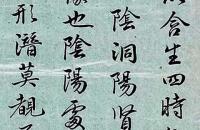 以含生四時
陰洞陽賢
像也陰陽處
形潛莫覩